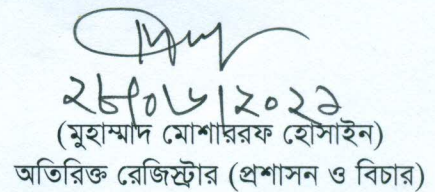 ২৮/০৬/২০২১
(মুহাম্মাদ মোশাররফ হোসাইন)
অতিরিক্ত রেজিস্ট্রার (প্রশাসন ও বিচার)